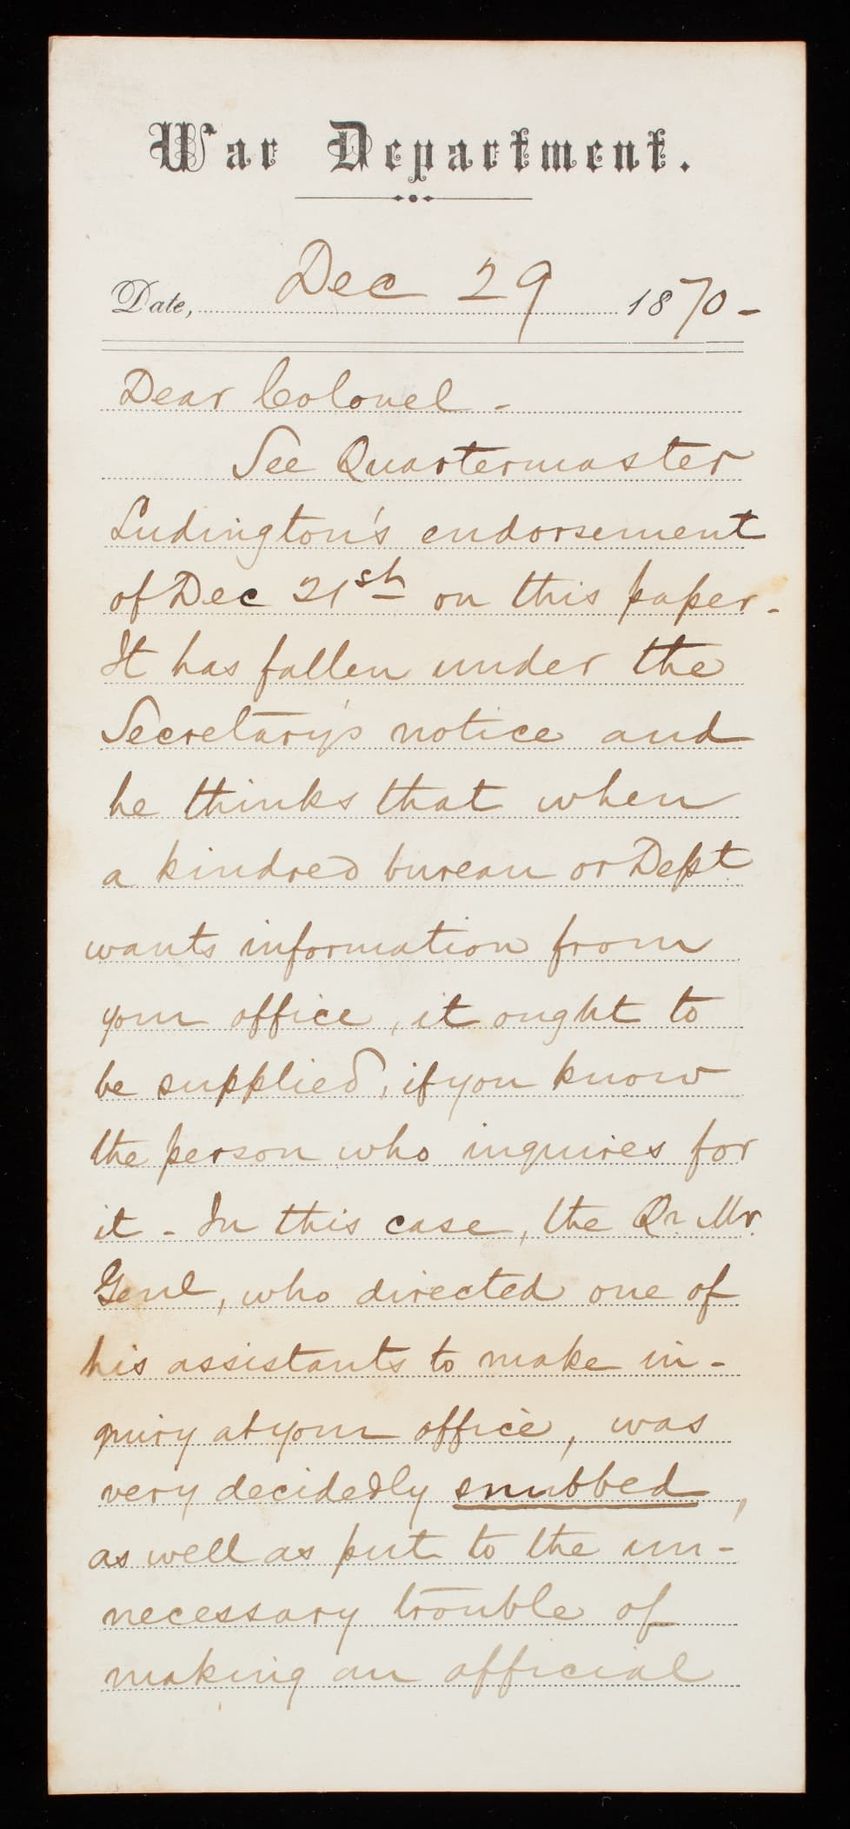 War Department.
Date, Dec 29 1870-
Dear Colonel -
See Quartermaster
Ludington's endorsement
of Dec 21st on this paper.
It has fallen under the
Secretary's notice and
he thinks that when
a kindred bureau or Dept
wants information from
your office, it ought to
be supplied, if you know
the person who inquires for
it - In this case, the Qr. Mr.
Genl, who directed one of
his assistants to make in-
quiry at your office, was
very decidedly snubbed,
as well as put to the un-
necessary trouble of
making an official